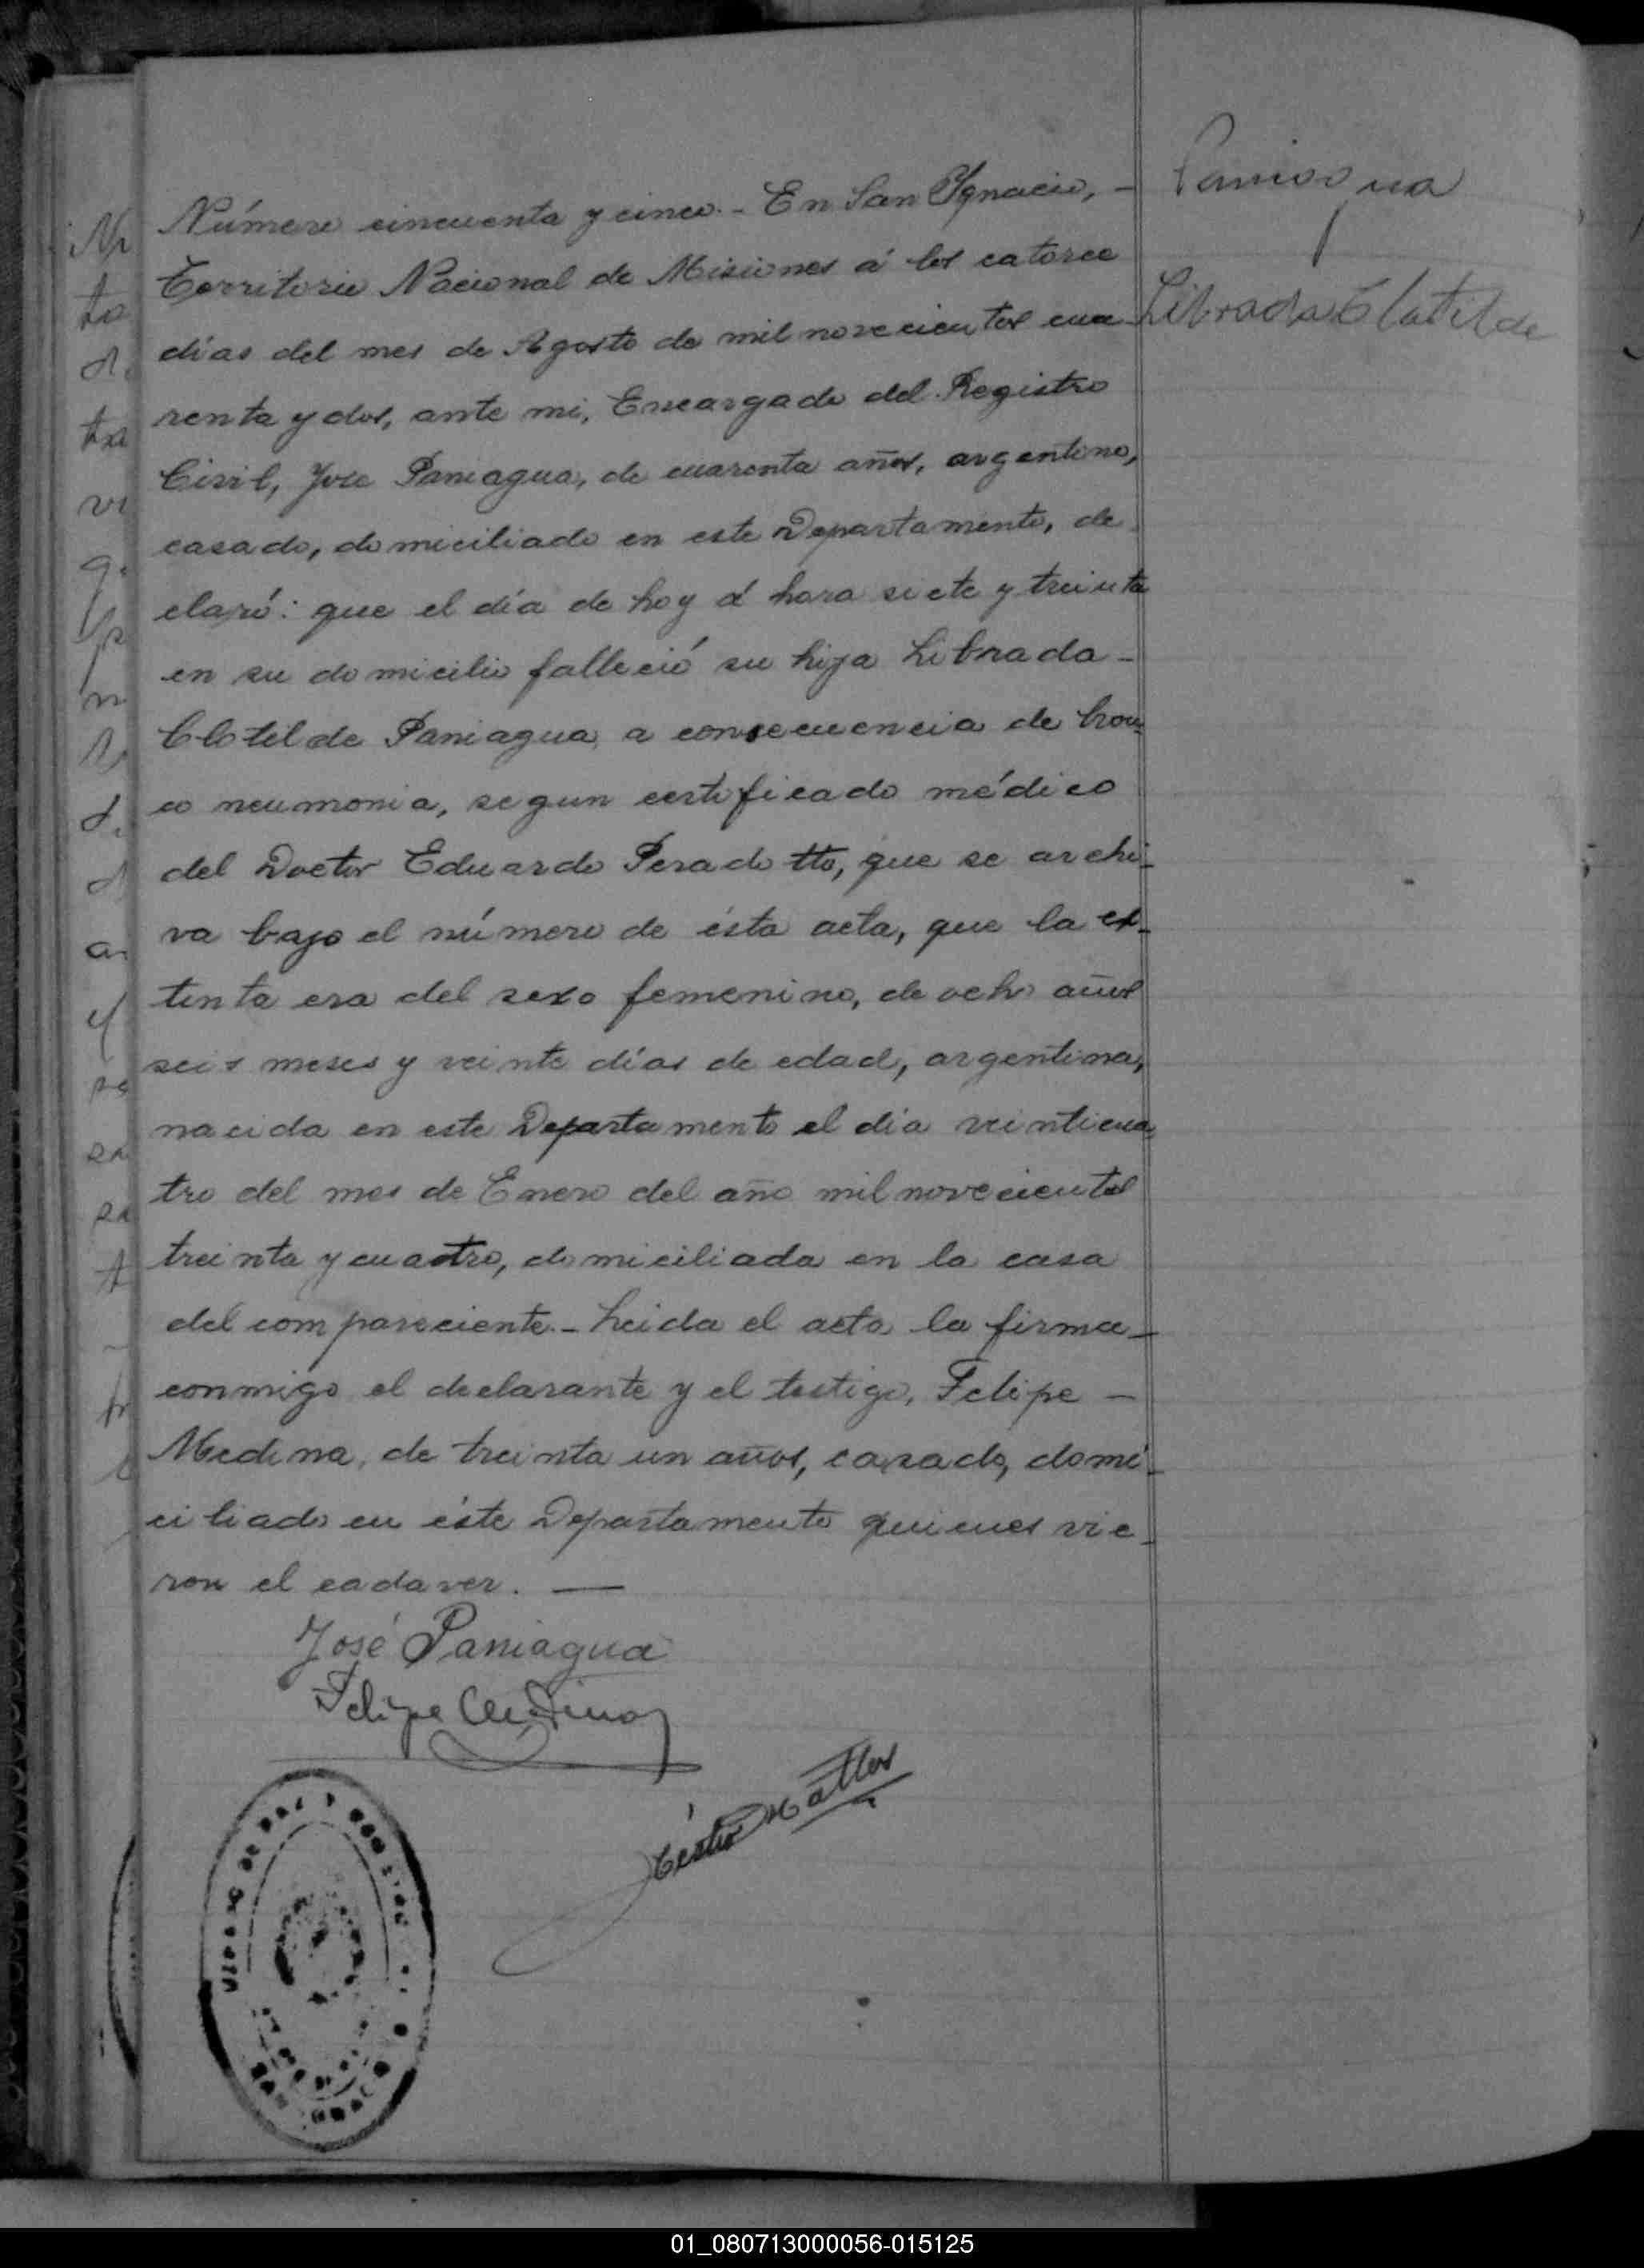 Número cincuenta y cinco.- En San Ygnacio, -
Territorio Nacional de Misiones á los catorce
días del mes de Agosto de mil novecientos cua
renta y dos, ante mi, Encargado del Registro
Civil, Jose Paniagua, de cuarenta años, argentino,
casado, domiciliado en este Departamento, de
claró: que el día de hoy á hora siete y treinta
en su domicilio falleció su hija Librada -
Clotilde Paniagua a consecuencia de bron
co neumonia, segun certificado médico
del Doctor Eduardo Peradotto, que se archi-
va bajo el número de ésta acta, que la ex-
tinta era del sexo femenino, de ocho años
seis meses y veinte días de edad, argentina,
nacida en este Departamento el día veinticua
tro del mes de Enero del año mil novecientos
treinta y cuatro, domiciliada en la casa
del compareciente.- Leida el acta la firma-
conmigo el declarante y el testigo, Felipe -
Medina, de treinta un años, casado, domi-
ciliado en éste Departamento quienes vie-
ron el cadaver. —
José Paniagua
Felipe Medina
Paniagua
Librada Clotilde
01_080713000056-015125